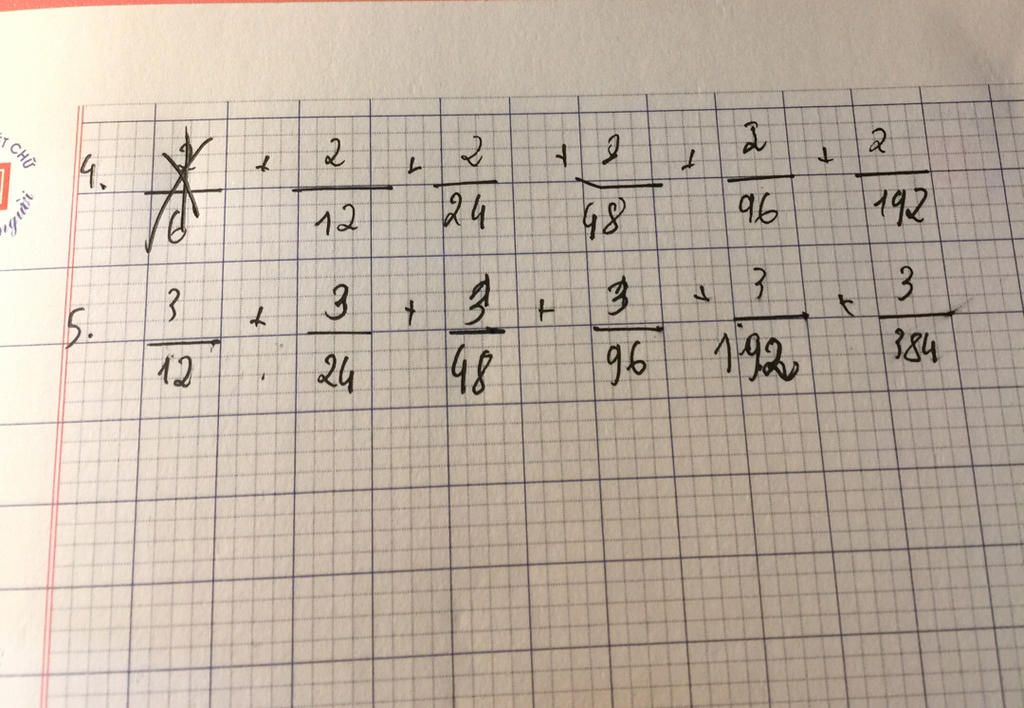 ẾT CHỮ
người
4. + 2/12 + 2/24 + 2/48 + 2/96 + 2/192
5. 3/12 + 3/24 + 3/48 + 3/96 + 3/192 + 3/384